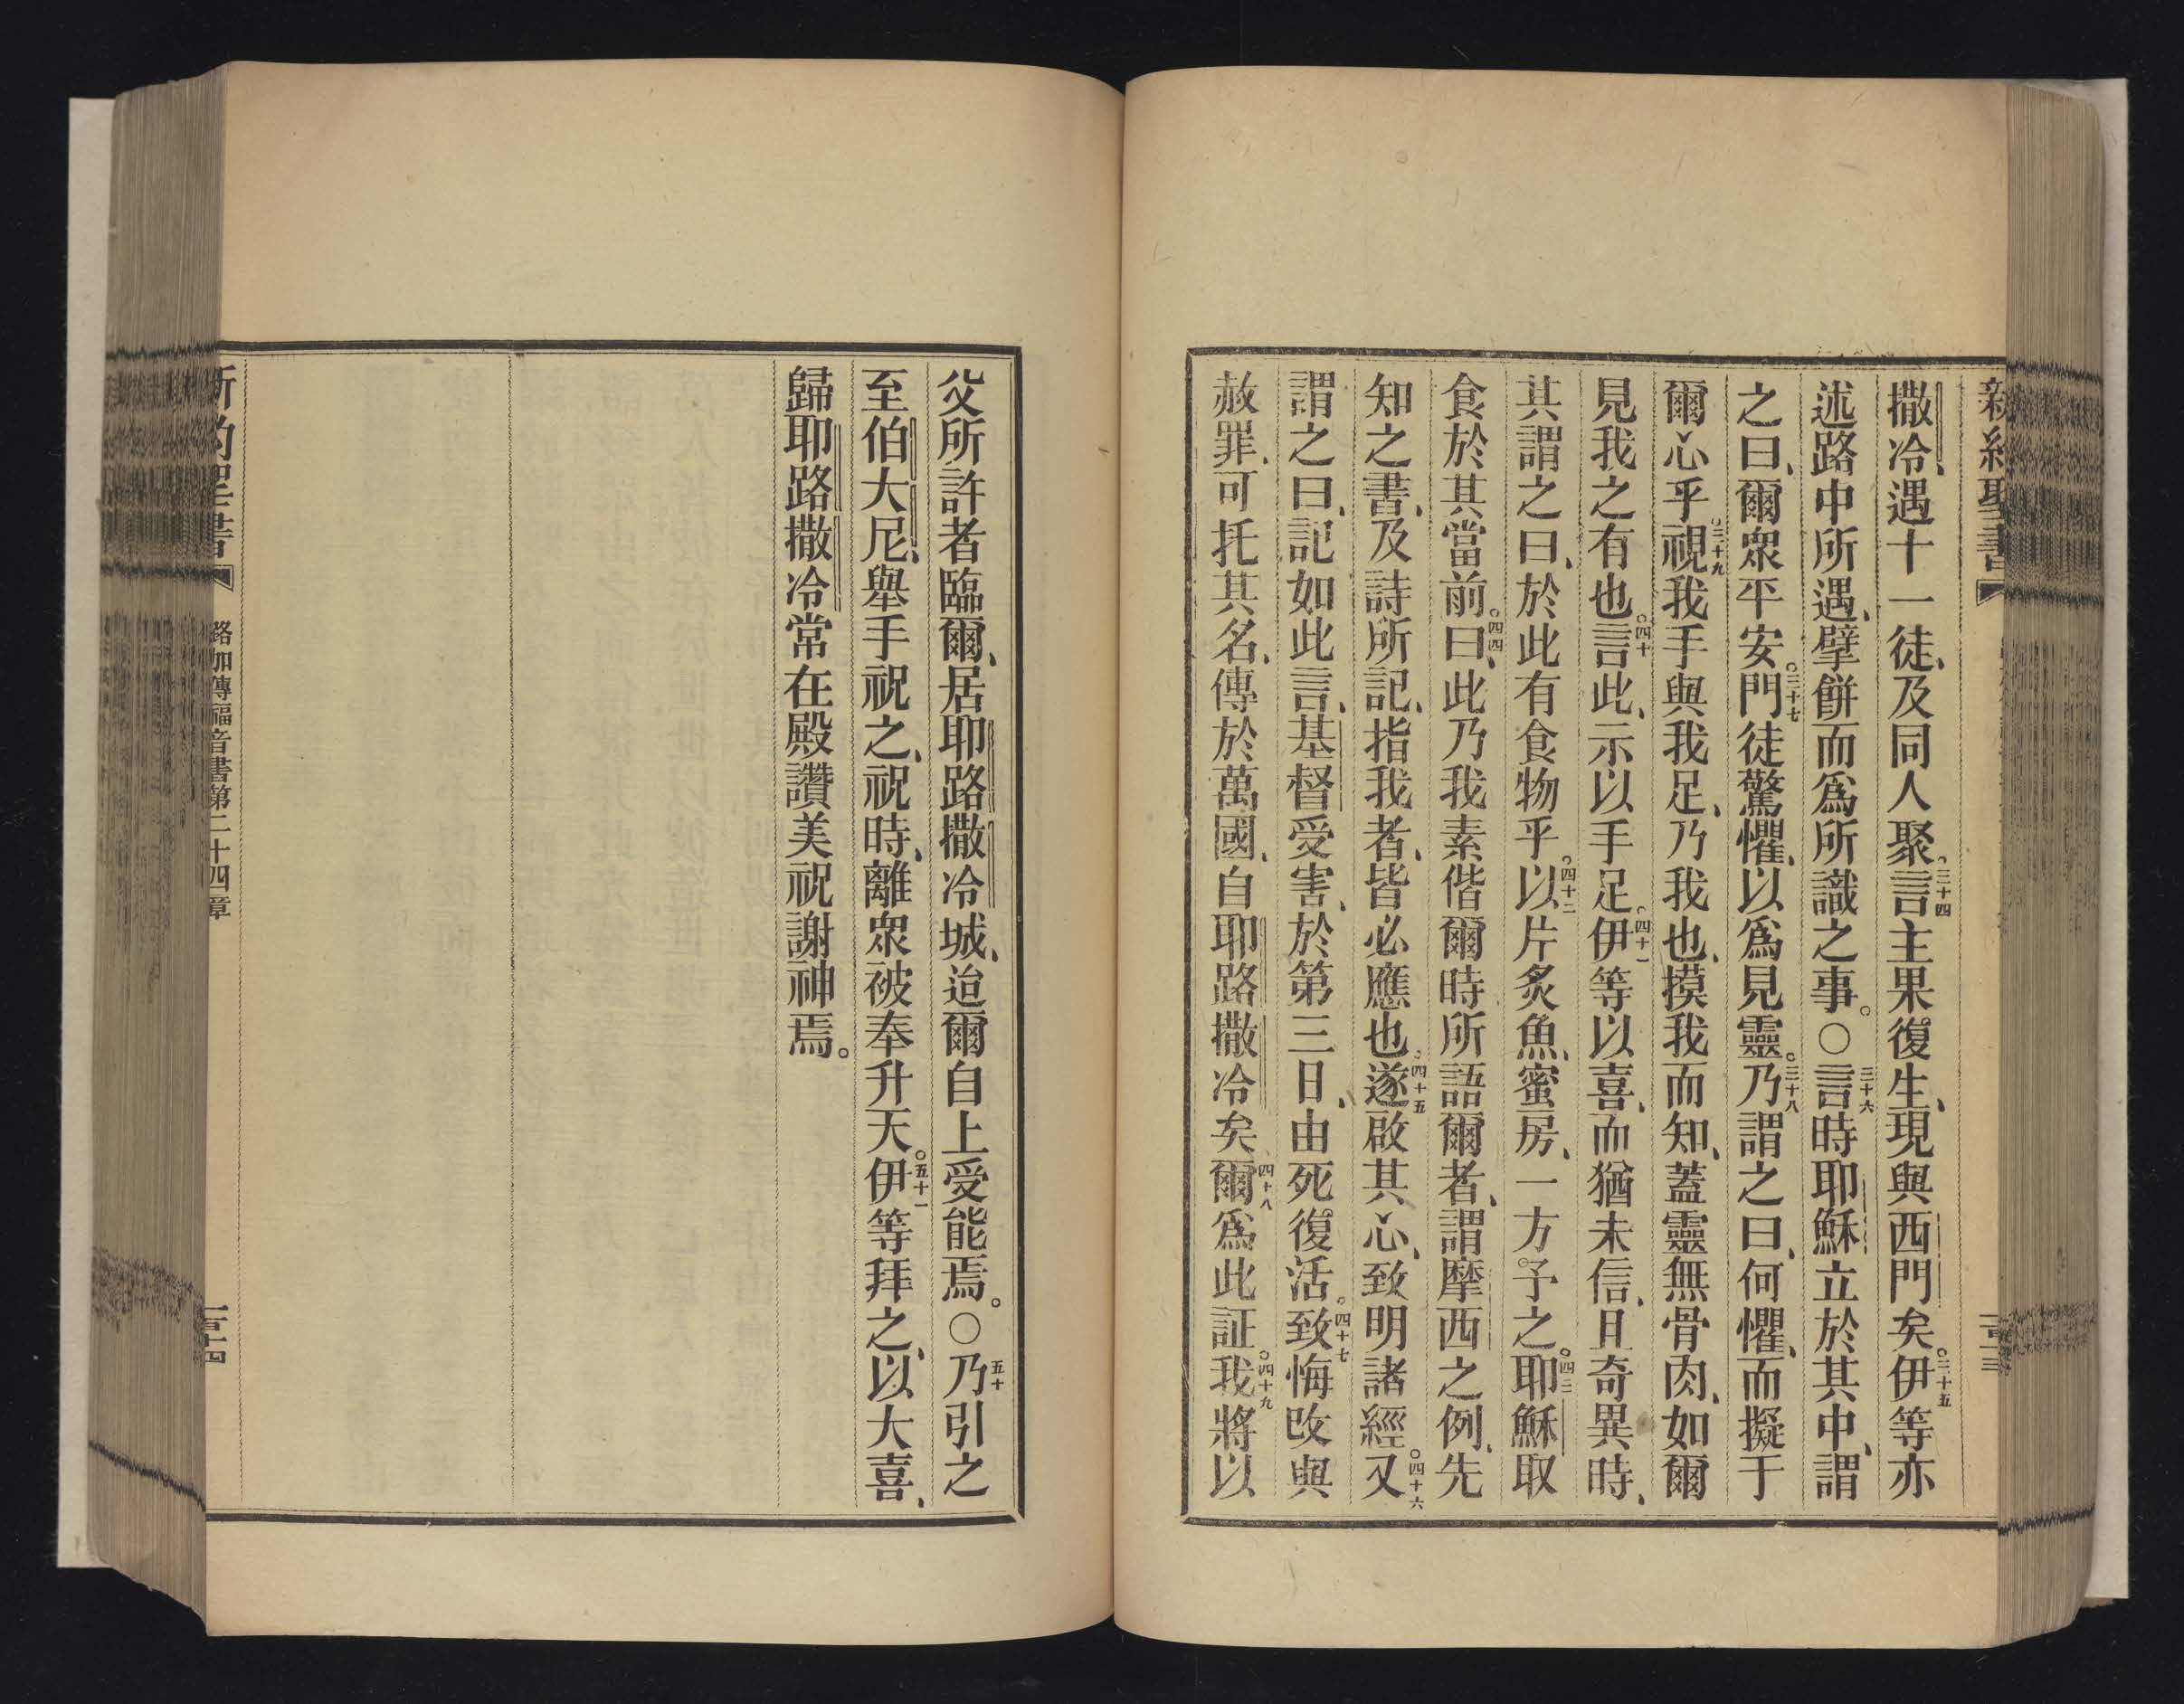 新約聖書
撒冷、遇十一徒、及同人聚。三十四言主果復生、現與西門矣。三十五伊等亦
述路中所遇、擘餅而爲所識之事。〇三十六言時耶穌立於其中、謂
之曰、爾衆平安。三十七門徒驚懼、以爲見靈。三十八乃謂之曰、何懼、而擬于
爾心乎。三十九視我手與我足、乃我也、摸我而知、蓋靈無骨肉、如爾
見我之有也。四十言此、示以手足。四十一伊等以喜、而猶未信、且奇異時、
其謂之曰、於此有食物乎。四十二以片炙魚、蜜房、一方予之。四三耶穌取
食於其當前。四四曰、此乃我素偕爾時所語爾者、謂摩西之例、先
知之書、及詩所記、指我者、皆必應也。四十五遂啟其心、致明諸經。四十六又
謂之曰、記如此言、基督受害、於第三日、由死復活。四十七致悔改與
赦罪、可托其名、傳於萬國、自耶路撒冷矣、四十八爾爲此証。四十九我將以
父所許者臨爾、居耶路撒冷城、迨爾自上受能焉。〇五十乃引之
至伯大尼、舉手祝之、祝時、離衆被奉升天。五十一伊等拜之、以大喜、
歸耶路撒冷常在殿讚美祝謝神焉。
新約聖書
路加傳福音書第二十四章